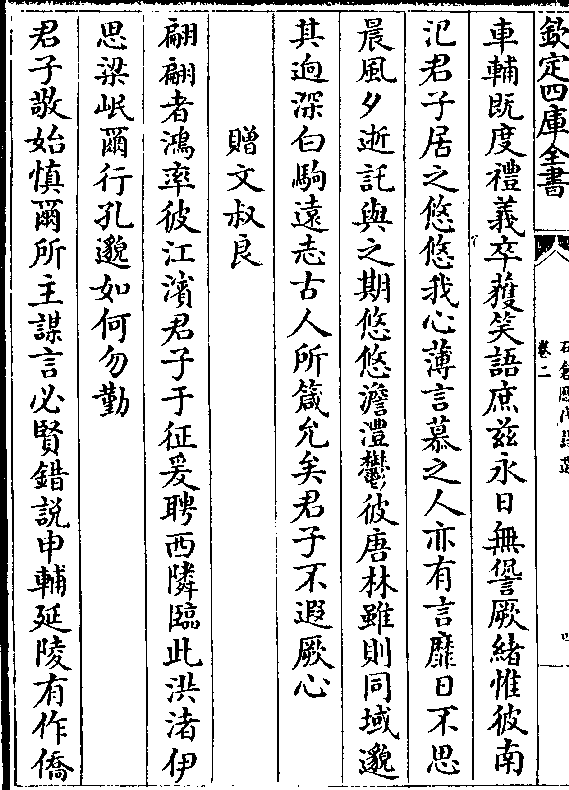 欽定四庫全書
卷二
車輔既度禮義卒獲笑語庶兹永日無諐厥緒惟彼南
汜君子居之悠悠我心薄言慕之人亦有言靡日不思
晨風夕逝託與之期悠悠澹澧鬱彼唐林雖則同域邈
其逈深白駒遠志古人所箴允矣君子不遐厥心
贈文叔良
翩翩者鴻率彼江濱君子于征爰聘西隣臨此洪渚伊
思梁岷爾行孔邈如何勿勤
君子敬始慎爾所主謀言必賢錯説申輔延陵有作僑